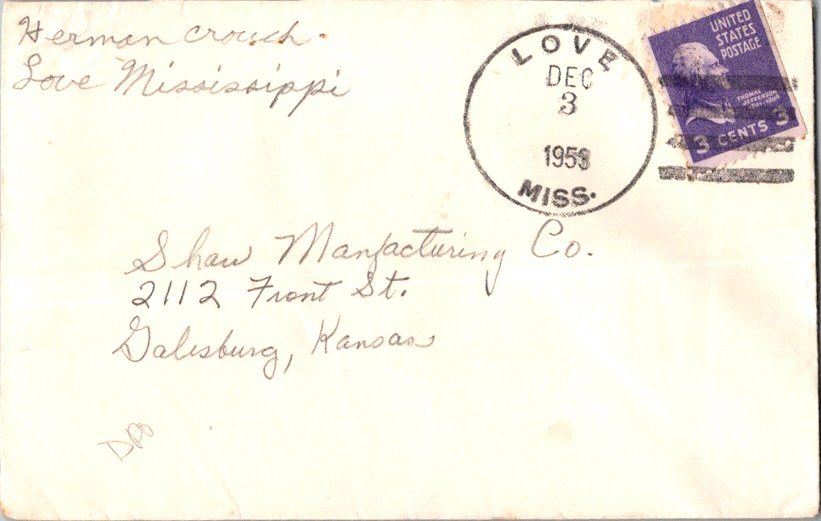 Herman Crouch.
Love Mississippi
LOVE
DEC
3
1953
MISS.
UNITED
STATES
POSTAGE
THOMAS
JEFFERSON
3 CENTS 3
Shaw Manfacturing Co.
2112 Front St.
Galesburg, Kansas
DPO